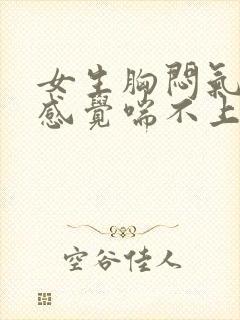 女生胸悶氣
感覺喘不上
空谷佳人